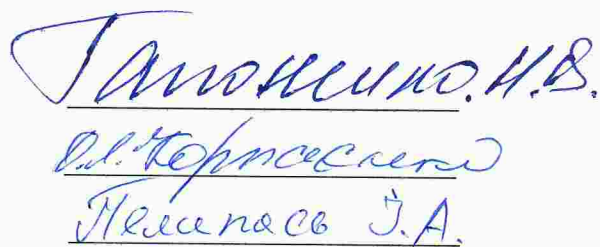 Гапоненко. Н.В.
О.Л. Корпасенко
Пелипась І.А.